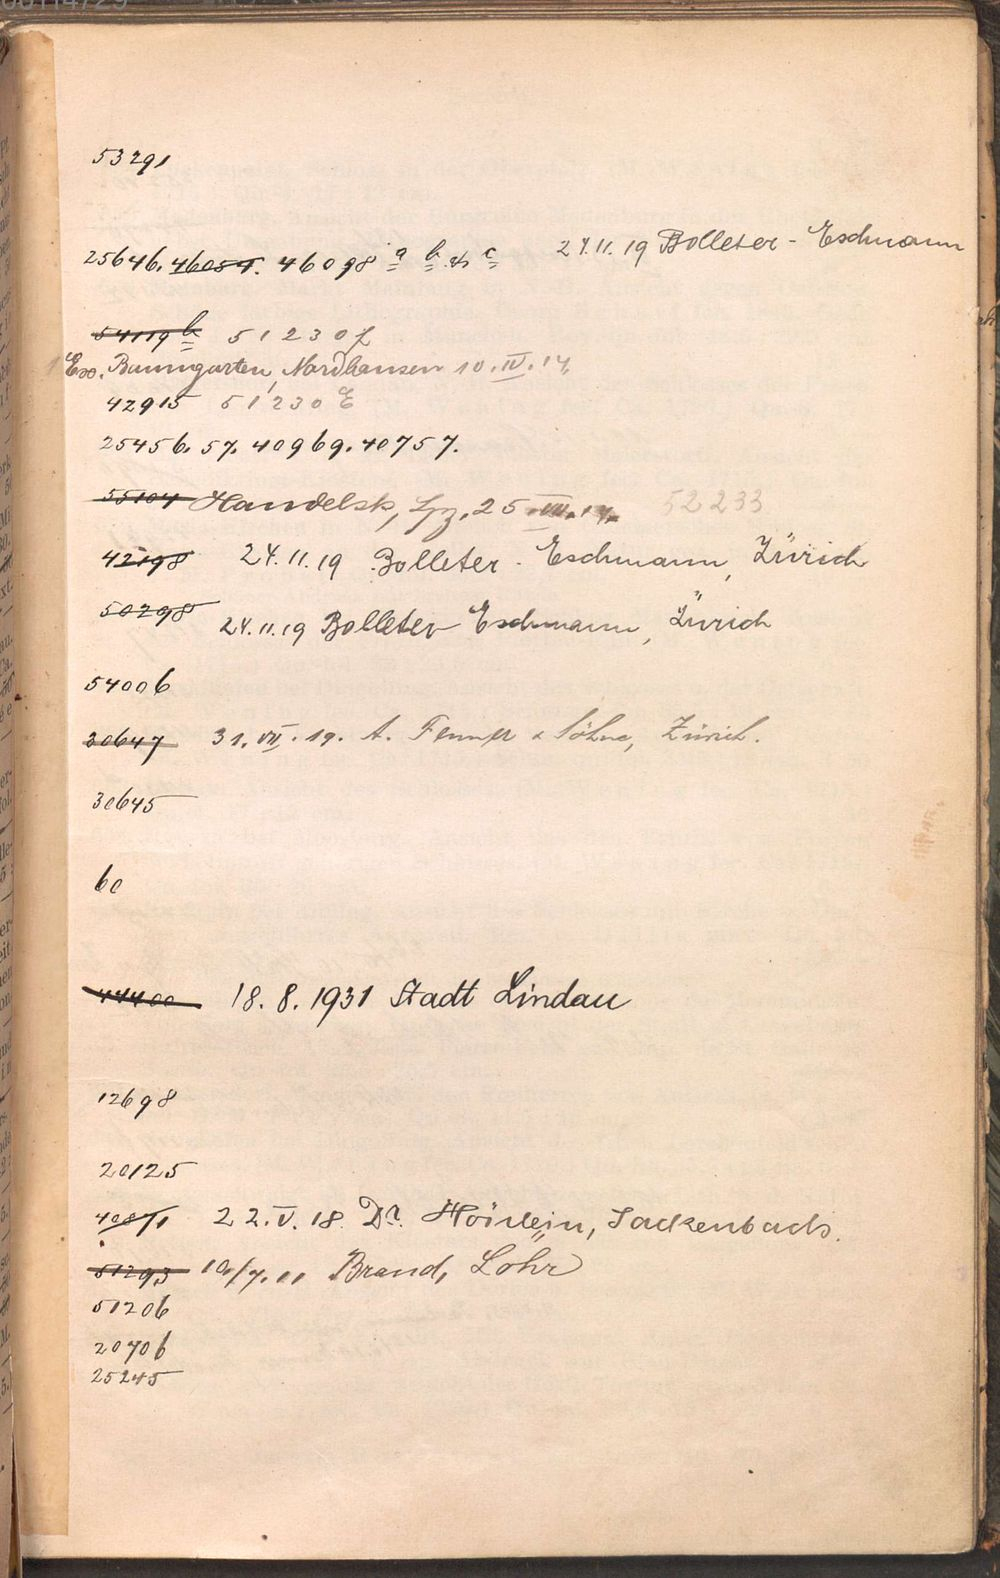 53291
25646. 46054. 46098 a b & c 24.11.19 Bolleter - Eschmann
54119 b 51230 f
1 Ex. Baumgarten, Nordhausen 10.IV.14.
42915 51230 E
25456. 57. 40969. 40757.
55104 Handelsk, Lpz. 25.III.14. 52233
42198 24.11.19 Bolleter - Eschmann, Zürich
50298 24.11.19 Bolleter Eschmann, Zürich
54006
30647 31.VII.19. A. Fenner & Söhne, Zürich.
30645
60
44400 18.8.1931 Stadt Lindau
12698
20125
40871 22.V.18. Dr. Hörlein, Sackenbach.
51293 10/7.11 Brand, Lohr
51206
20706
25245